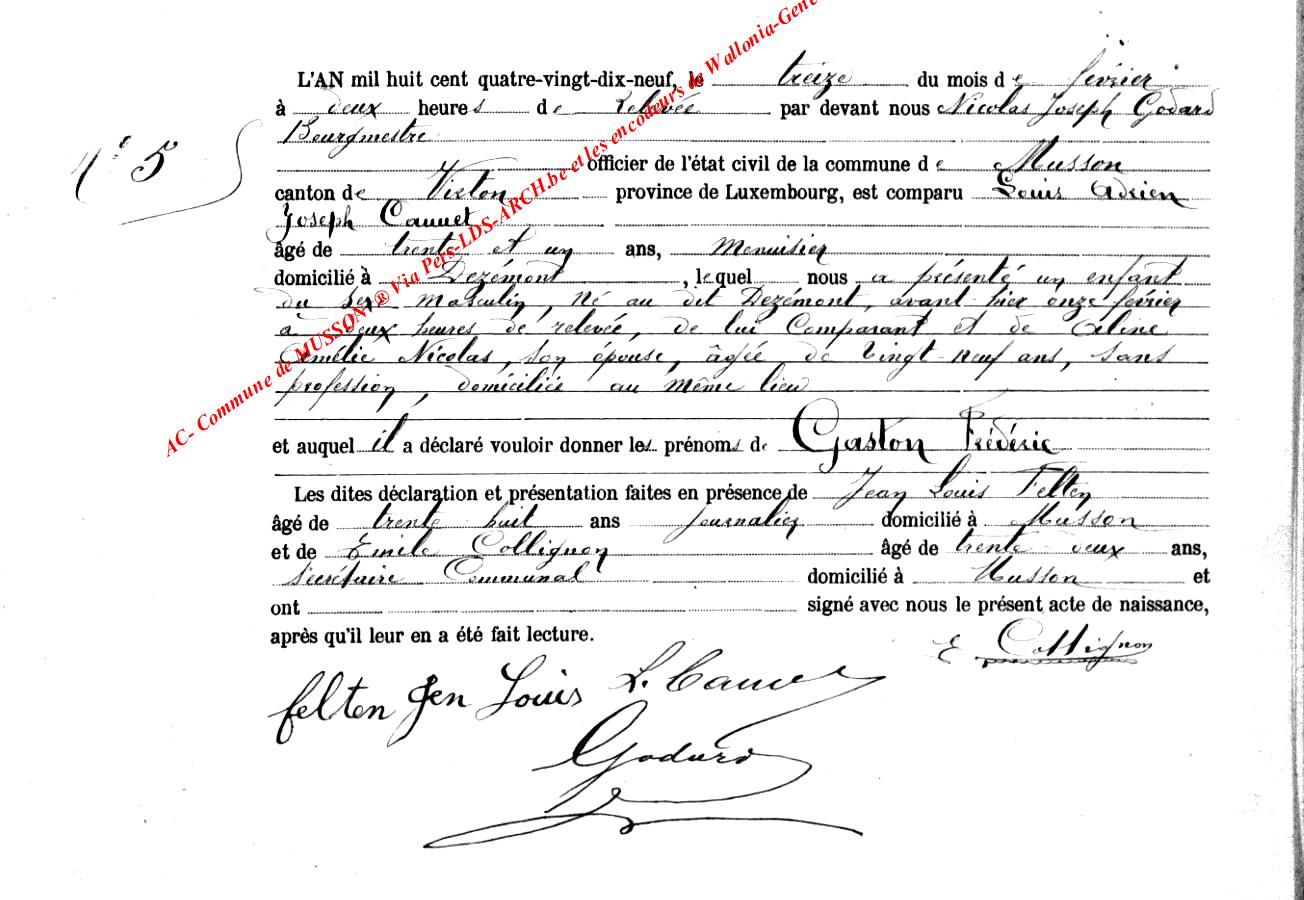 AC- Commune de MUSSON® Via Pers-LDS-ARCH.be et les encodeurs de Wallonia-Gene
L'AN mil huit cent quatre-vingt-dix-neuf, le treize du mois de février
à deux heures de Relevée par devant nous Nicolas Joseph Godard
Bourgmestre
N° 5
officier de l'état civil de la commune de Musson
canton de Virton province de Luxembourg, est comparu Louis Adrien
Joseph Cannet
âgé de trente et un ans, Menuisier
domicilié à Dezémont, lequel nous a présenté un enfant
du sexe masculin, né au dit Dezémont, avant hier onze février
à deux heures de relevée, de lui Comparant et de Céline
Amélie Nicolas, son épouse, âgée de Vingt-neuf ans, sans
profession, domiciliée au même lieu
et auquel il a déclaré vouloir donner les prénoms de Gaston Frédéric
Les dites déclaration et présentation faites en présence de Jean Louis Felten
âgé de trente huit ans journalier domicilié à Musson
et de Emile Collignon âgé de trente deux ans,
secrétaire Communal domicilié à Musson et
ont signé avec nous le présent acte de naissance,
après qu'il leur en a été fait lecture.
E Collignon
felten Jen Louis L. Canne
Godard